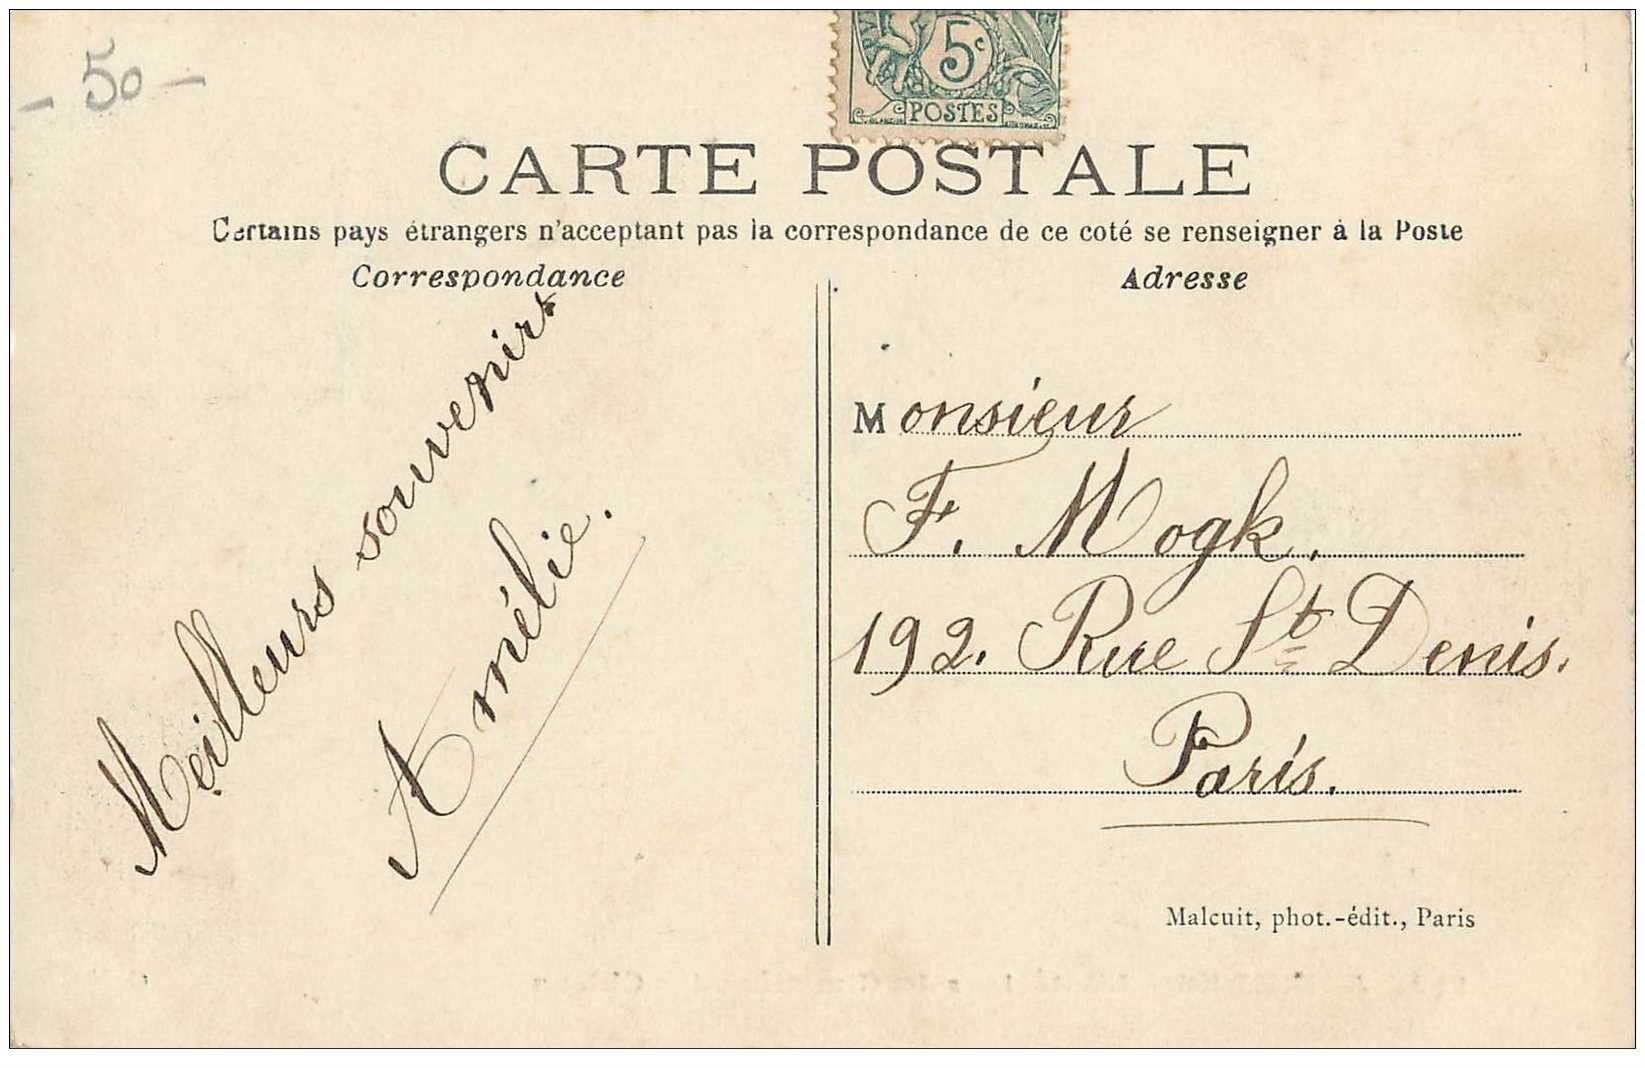 - 50 -
5c
POSTES
CARTE POSTALE
Certains pays étrangers n'acceptant pas la correspondance de ce coté se renseigner à la Poste
Correspondance
Meilleurs souvenirs
Amélie.
Adresse
Monsieur
F. Mogk.
192. Rue St Denis.
Paris.
Malcuit, phot.-édit., Paris